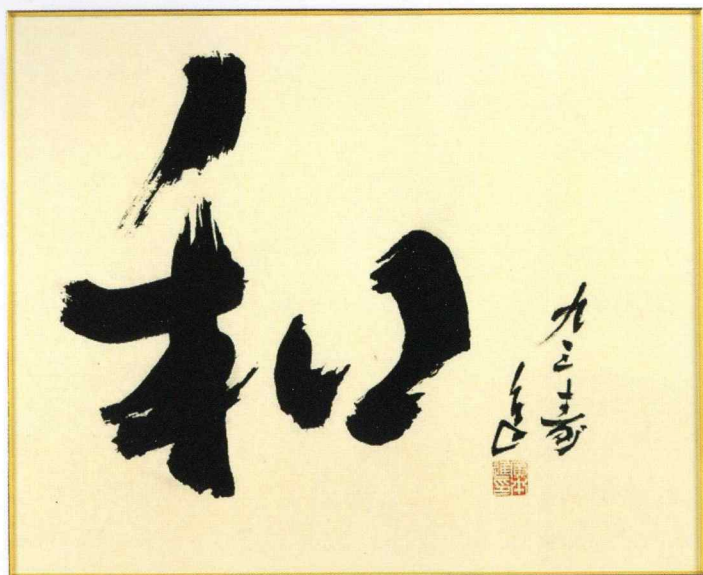 和
九三寿